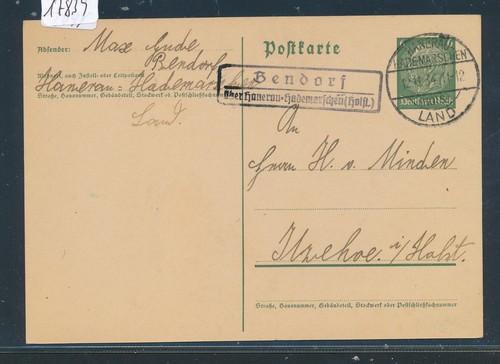 17839
Absender: Max Ende
Bendorf
Wohnort, auch Zustell- oder Leitpostamt
Hanerau-Hademarschen
Straße, Hausnummer, Gebäudeteil, Stockwerk oder Postschließfachnummer
Land.
Postkarte
Bendorf
über Hanerau-Hademarschen (Holst.)
HANERAU-
HADEMARSCHEN
LAND
An
Herrn H. v. Minden
Itzehoe i/Holst.
Straße, Hausnummer, Gebäudeteil, Stockwerk oder Postschließfachnummer